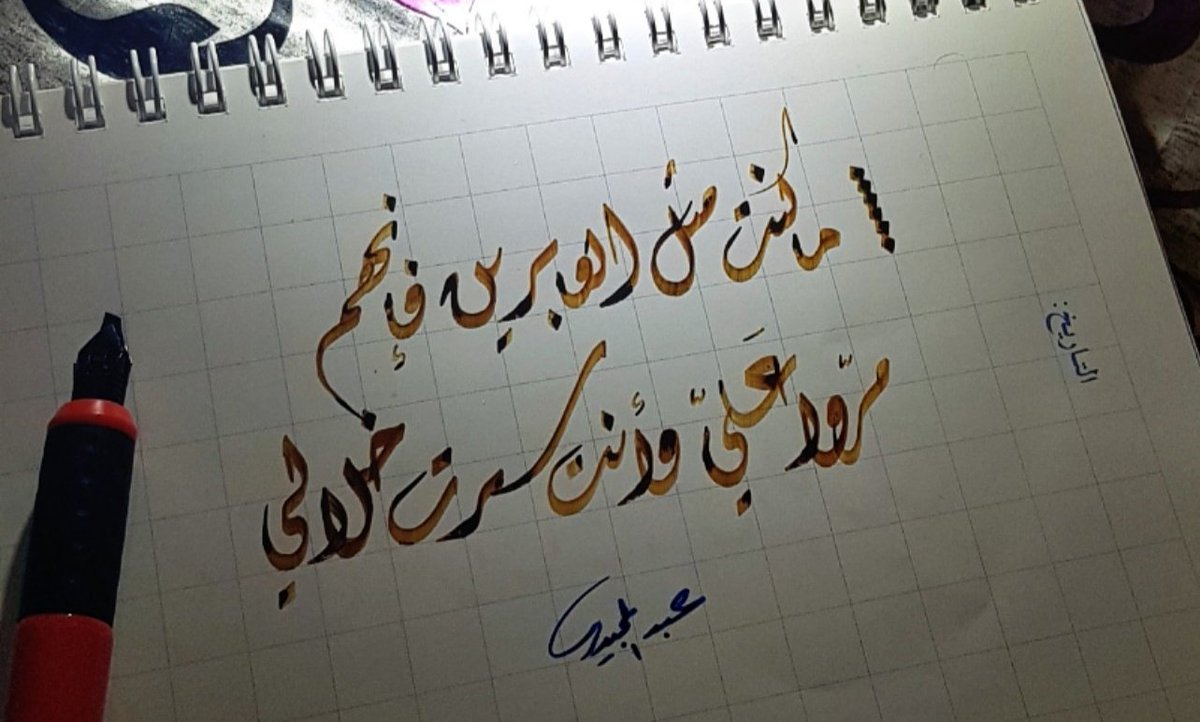 التاريخ:
ما كنت مثل العابرين فإنهم
مرّوا عَليّ وأنت سرت خلالي
عبدالمجيد